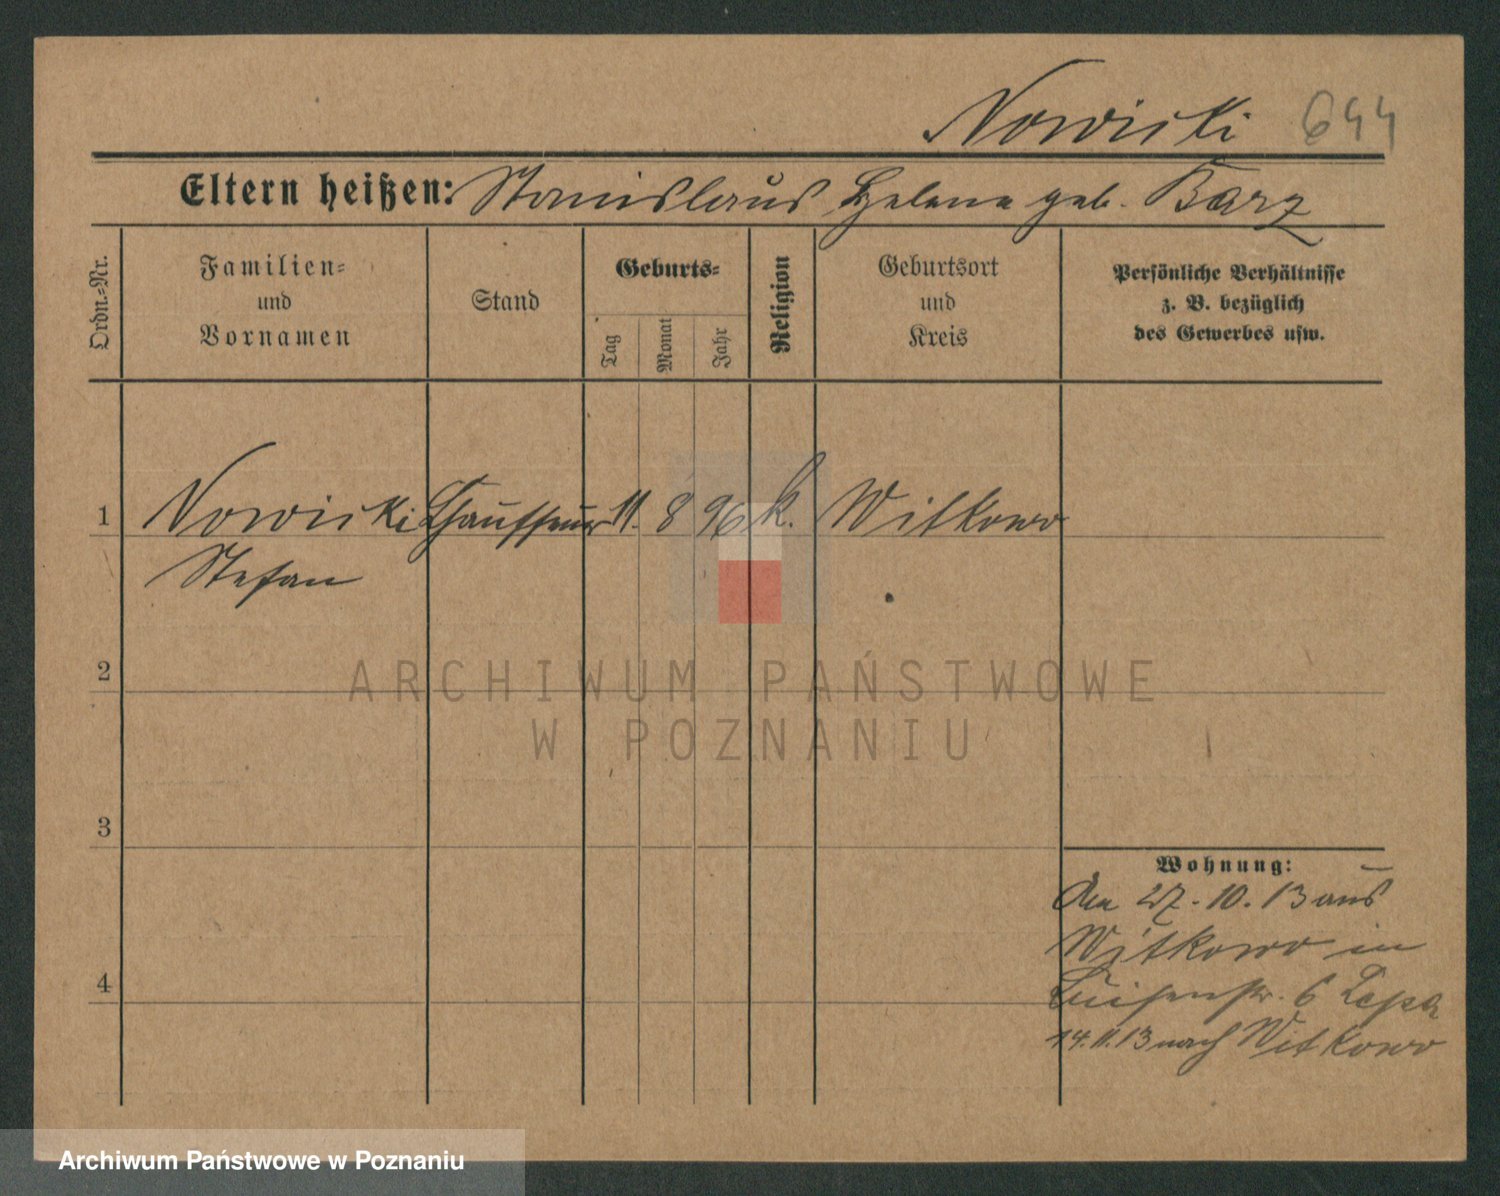 Nowicki 644
Eltern heißen: Stanislaus Helene geb. Barz
Ordn.-Nr.
Familien-
und
Vornamen
Stand
Geburts-
Tag
Monat
Jahr
Religion
Geburtsort
und
Kreis
Persönliche Verhältnisse
z. B. bezüglich
des Gewerbes usw.
1 Nowicki Chauffeur 11. 8 96 k. Witkowo
Stefan
2
ARCHIWUM PAŃSTWOWE
W POZNANIU
3
Wohnung:
Den 27.10.13 aus
Witkowo in
4
Luisenstr. 6
14.11.13 nach Witkowo
Archiwum Państwowe w Poznaniu